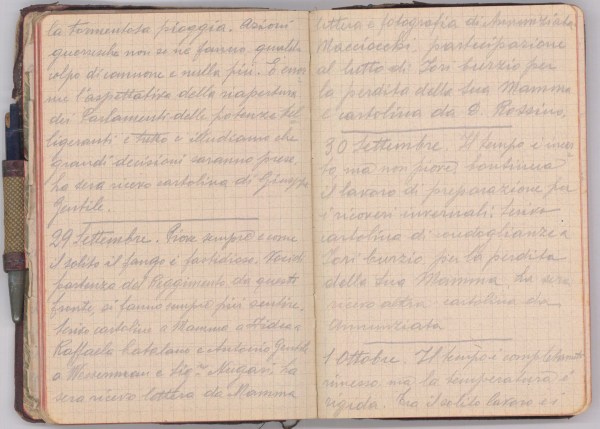 la tormentosa pioggia. Azioni
guerresche non se ne fanno, qualche
colpo di cannone e nulla più. È enor
me l'aspettativa della riapertura
dei Parlamenti delle potenze bel
ligeranti e tutto e illudiamo che
grandi decisioni saranno prese.
La sera ricevo cartolina di Giuseppe
Gentile.
29 Settembre. Piove sempre e come
il solito il fango è fastidioso. Voci di
partenza del Reggimento, da questo
fronte, si fanno sempre più sentire.
Scrivo cartoline a Mamma a Fidea a
Raffaele Catalano e Antonio Gentile
a Wesserman e Sig.na Mugari. La
sera ricevo lettera da Mamma
lettera e fotografia di Annunziata
Macciocchi, partecipazione
al lutto di Iori burzio per
la perdita della sua Mamma
e cartolina da D. Rossino.
30 Settembre. Il tempo è incer
to ma non piove. Continua
il lavoro di preparazione per
i ricoveri invernali. Scrivo
cartolina di condoglianze a
Iori burzio per la perdita
della sua Mamma. La sera
ricevo altra cartolina da
Annunziata
1 Ottobre. Il tempo è completamente
rimesso, ma la temperatura è
rigida. Fra il solito lavoro e i